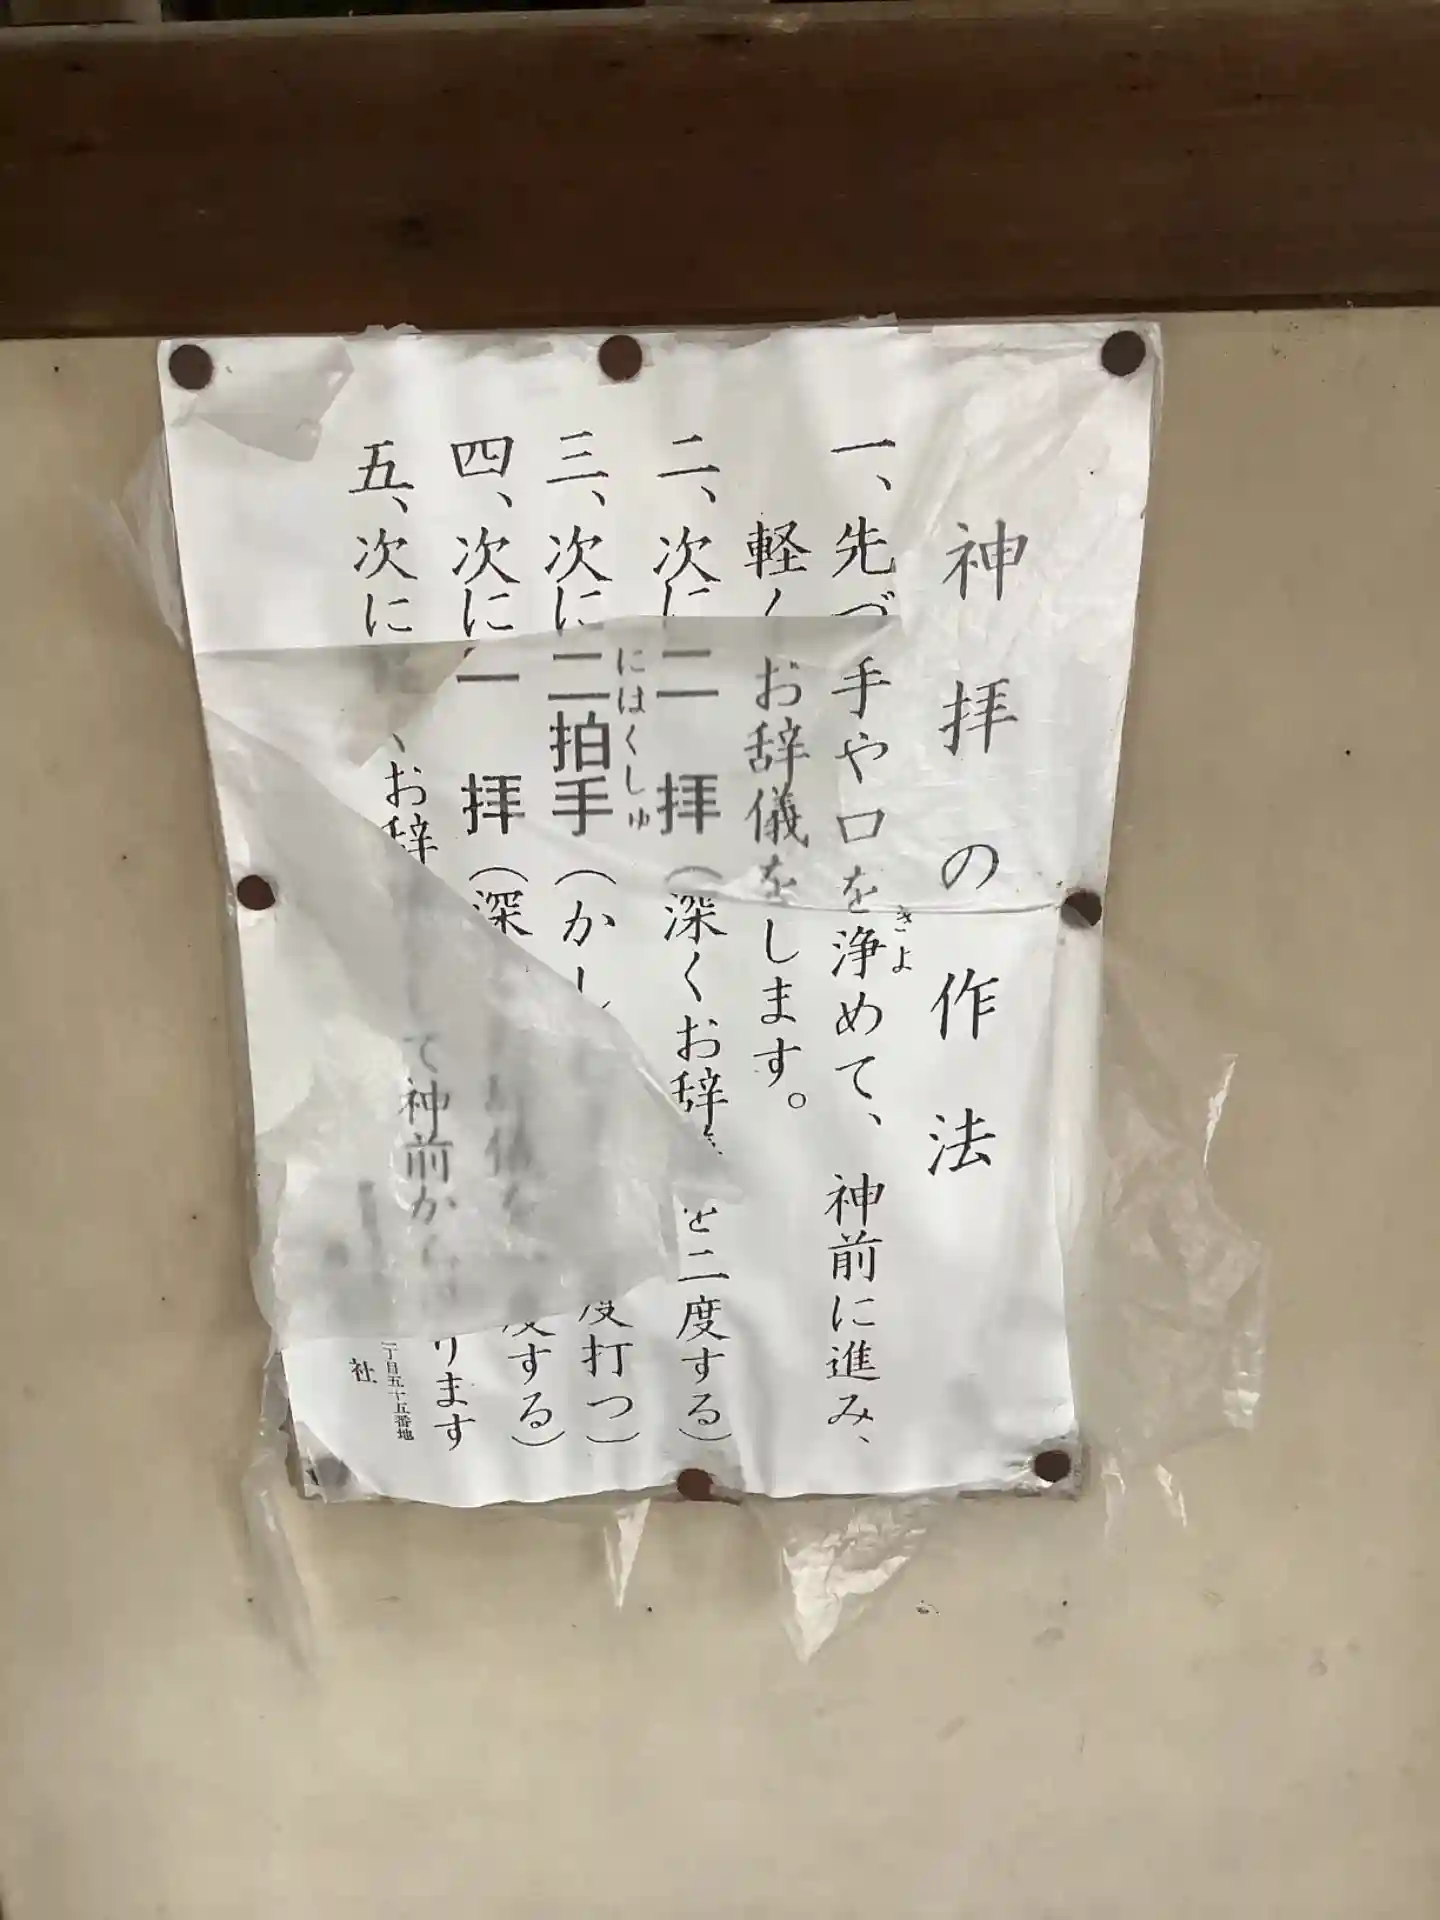 神拝の作法
一、先づ手や口を浄めて、神前に進み、
きよ
軽くお辞儀をします。
二、次に二拝(深くお辞 を二度する)
三、次に二拍手(かし 度打つ)
にはくしゅ
四、次に一拝(深 度する)
五、次に 、お辞 て神前か ります
丁目五十五番地
社